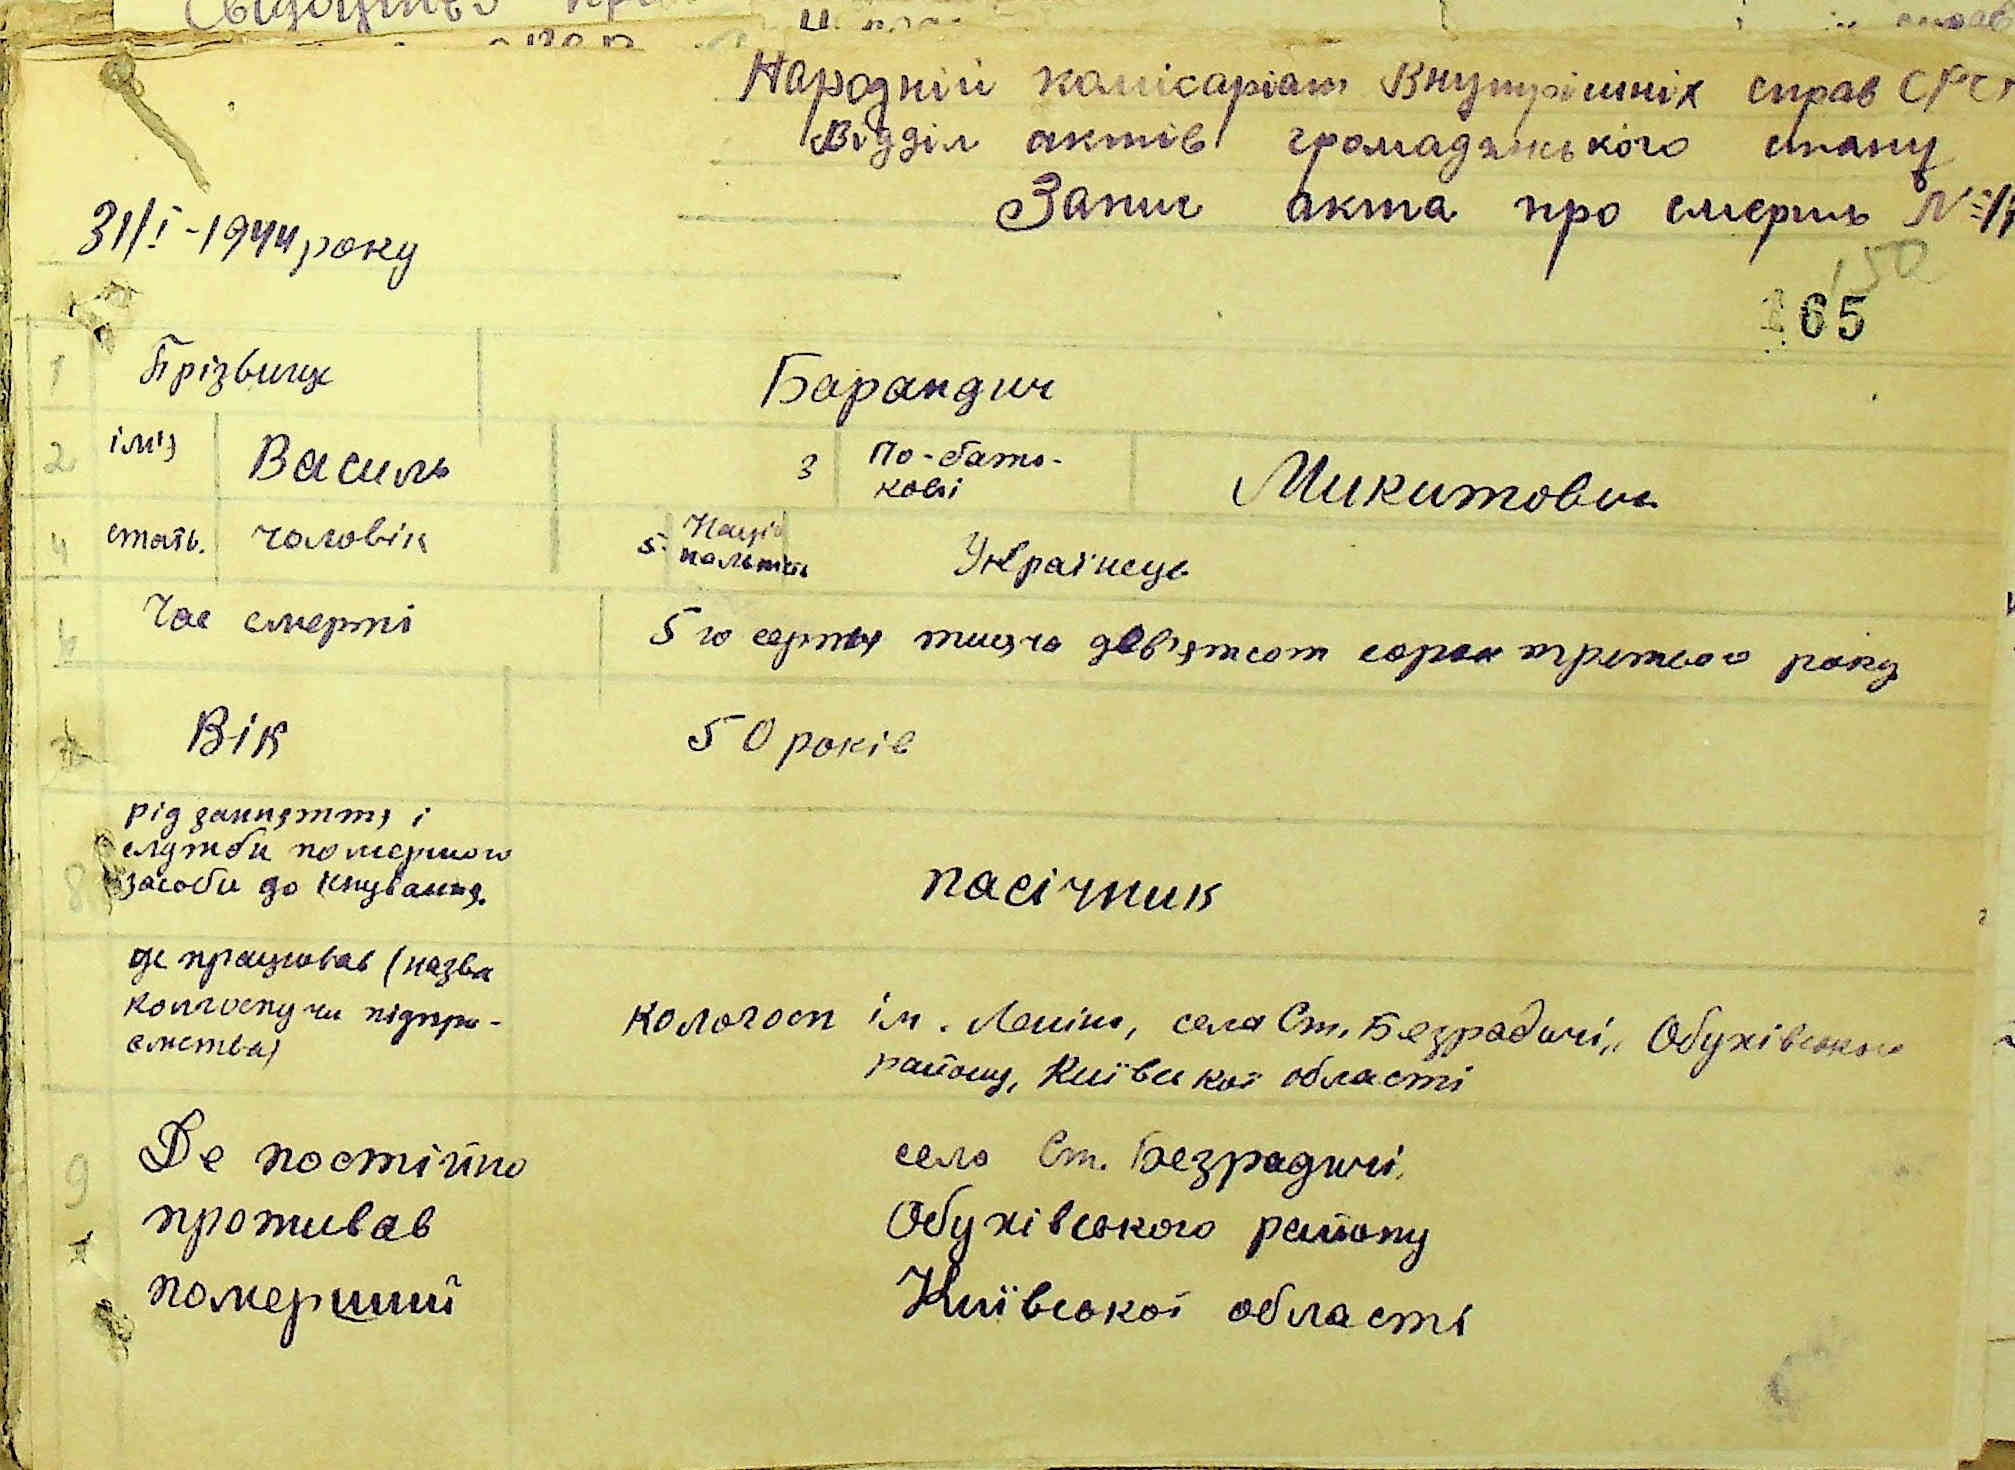 Народній комісаріат Внутрішніх справ СРСР
Відділ актів громадянського стану
Запис акта про смерть №
31/I-1944 року
150
165
1 Прізвище Барандич
2 ім'я Василь 3 По-бать-
кові Микитович
4 стать. чоловік 5. Націо
нальність Українець
6 Час смерті 5го серпня тисяча дев'ятсот сорок третього року
Вік 50 років
рід заняття і
служби помершого
8 засоби до існування. пасічник
де працював (назва
колгоспу чи підпри-
ємства) Кологосп ім. Леніна, села Ст. Безрадичі, Обухівського
району, Київської області
9 Де постійно село Ст. Безрадичі,
проживав Обухівського району
померший Київської області